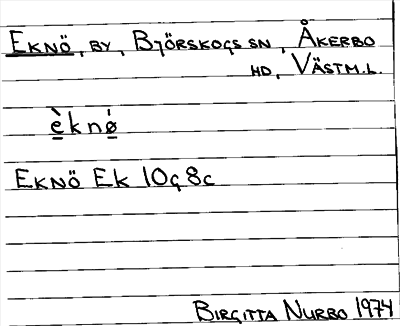 EKNÖ, BY, BJÖRSKOGS SN, ÅKERBO
HD, VÄSTM.L.
è̲knǿ̲
EKNÖ EK 10G8C
BIRGITTA NURBO 1974